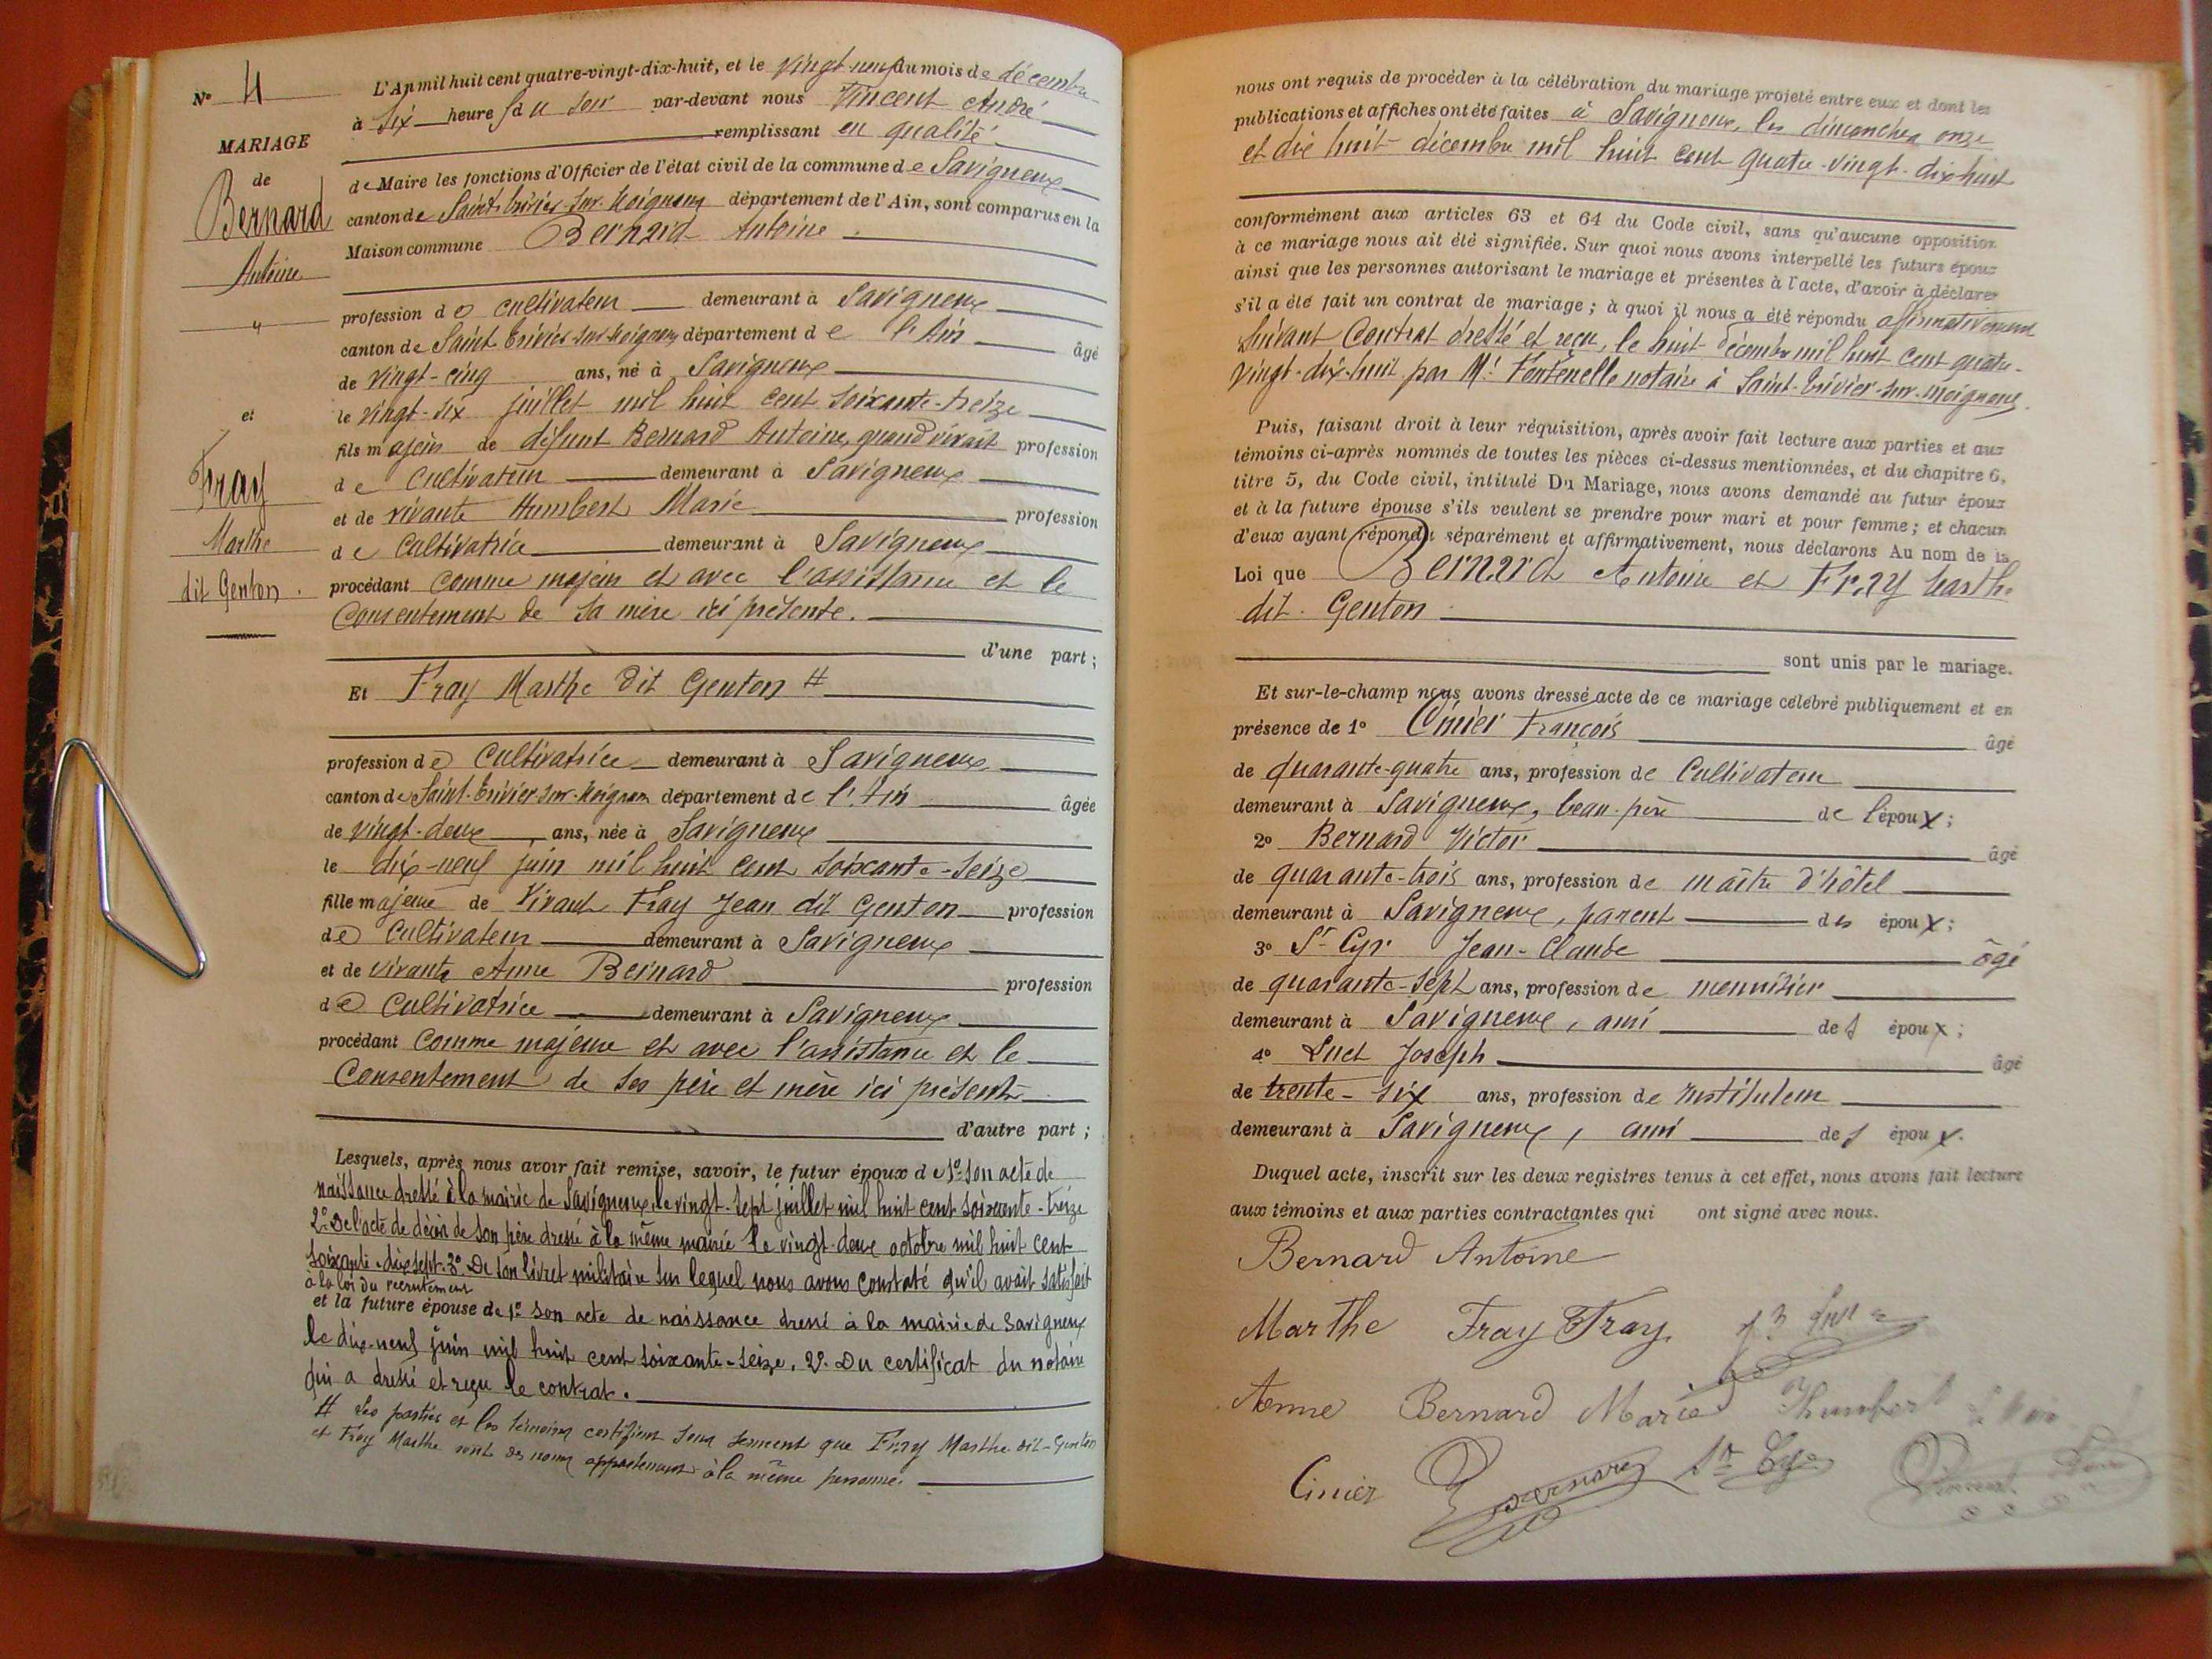 N° 4
MARIAGE
de
Bernard
Antoine
"
et
Fray
Marthe
dit Genton.
L'An mil huit cent quatre-vingt-dix-huit, et le vingt-neuf du mois de décembre
à six heures du soir par-devant nous Vincent André
remplissant en qualité
de Maire les fonctions d'Officier de l'état civil de la commune de Savigneux
canton de Saint-Trivier-sur-Moignans département de l'Ain, sont comparus en la
Maison commune Bernard Antoine
profession de cultivateur demeurant à Savigneux
canton de Saint-Trivier-sur-Moignans département de l'Ain âgé
de vingt-cinq ans, né à Savigneux
le vingt-six juillet mil huit cent soixante-treize
fils majeur de défunt Bernard Antoine, quand vivait profession
de cultivateur demeurant à Savigneux
et de vivante Humbert Marie profession
de cultivatrice demeurant à Savigneux
procédant comme majeur et avec l'assistance et le
consentement de sa mère ici présente.
d'une part;
Et Fray Marthe dit Genton #
profession de Cultivatrice demeurant à Savigneux
canton de Saint-Trivier-sur-Moignans département de l'Ain âgée
de vingt-deux ans, née à Savigneux
le dix-neuf juin mil huit cent soixante-seize
fille majeure de vivant Fray Jean dit Genton profession
de cultivateur demeurant à Savigneux
et de vivante Anne Bernard profession
de cultivatrice demeurant à Savigneux
procédant comme majeure et avec l'assistance et le
consentement de ses père et mère ici présents
d'autre part;
Lesquels, après nous avoir fait remise, savoir, le futur époux de 1° son acte de
naissance dressé à la mairie de Savigneux, le vingt-sept juillet mil huit cent soixante-treize
2° De l'acte de décès de son père dressé à la même mairie le vingt-deux octobre mil huit cent
soixante-dix-sept. 3° De son livret militaire sur lequel nous avons constaté qu'il avait satisfait
à la loi du recrutement
et la future épouse de 1° son acte de naissance dressé à la mairie de Savigneux
le dix-neuf juin mil huit cent soixante-seize. 2° Du certificat du notaire
qui a dressé et reçu le contrat.
# Les parties et les témoins certifient sous serment que Fray Marthe dit-Genton
et Fray Marthe sont des noms appartenant à la même personne.
nous ont requis de procéder à la célébration du mariage projeté entre eux et dont les
publications et affiches ont été faites à Savigneux, les dimanches onze
et dix huit décembre mil huit cent quatre-vingt-dix huit
conformément aux articles 63 et 64 du Code civil, sans qu'aucune opposition
à ce mariage nous ait été signifiée. Sur quoi nous avons interpellé les futurs époux
ainsi que les personnes autorisant le mariage et présentes à l'acte, d'avoir à déclarer
s'il a été fait un contrat de mariage; à quoi il nous a été répondu affirmativement
suivant contrat dressé et reçu, le huit décembre mil huit cent quatre-
vingt-dix-huit par Me Fontenelle notaire à Saint-Trivier-sur-Moignans.
Puis, faisant droit à leur réquisition, après avoir fait lecture aux parties et aux
témoins ci-après nommés de toutes les pièces ci-dessus mentionnées, et du chapitre 6,
titre 5, du Code civil, intitulé Du Mariage, nous avons demandé au futur époux
et à la future épouse s'ils veulent se prendre pour mari et pour femme; et chacun
d'eux ayant répondu séparément et affirmativement, nous déclarons Au nom de la
Loi que Bernard Antoine et Fray Marthe
dit Genton
sont unis par le mariage.
Et sur-le-champ nous avons dressé acte de ce mariage célébré publiquement et en
présence de 1° Cinier François âgé
de quarante-quatre ans, profession de Cultivateur
demeurant à Savigneux, beau-père de l'époux;
2° Bernard Victor âgé
de quarante-trois ans, profession de maître d'hôtel
demeurant à Savigneux, parent des époux;
3° St Cyr Jean-Claude âgé
de quarante-sept ans, profession de menuisier
demeurant à Savigneux, ami des époux;
4° Luct Joseph âgé
de trente-six ans, profession de Instituteur
demeurant à Savigneux, ami des époux.
Duquel acte, inscrit sur les deux registres tenus à cet effet, nous avons fait lecture
aux témoins et aux parties contractantes qui ont signé avec nous.
Bernard Antoine
Marthe Fray Fray
Anne Bernard Marie Humbert
Cinier Bernard St Cyr Vincent